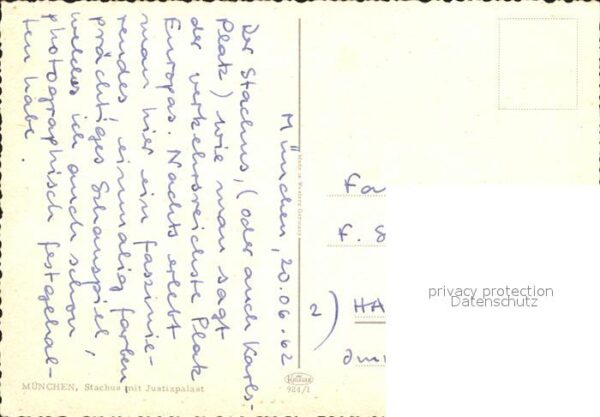 München, 20.06.62
Der Stachus, (oder auch Karls-
Platz) wie man sagt
der verkehrsreichste Platz
Europas. Nachts erlebt
man hier ein faszinie-
rendes einmalig farben
prächtiges Schauspiel,
welches ich auch schon
photographisch festgehal-
ten habe.
MÜNCHEN, Stachus mit Justizpalast
Made in Western Germany
924/1
Fa
F. S
2) HA
privacy protection
Datenschutz